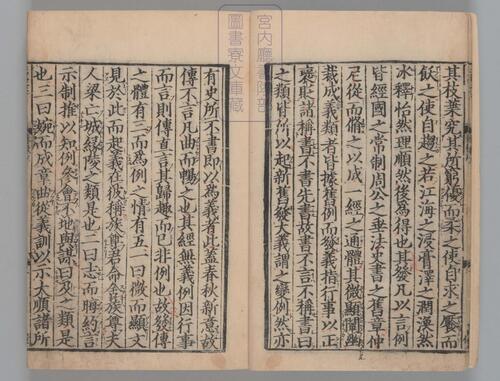 其枝葉究其所窮優而柔之使自求之饜而
飫之使自趨之若江海之浸膏澤之潤渙然
冰釋怡然理順然後為得也其發凡以言例
皆經國之常制周公之垂法史書之舊章仲
尼從而脩之以成一經之通體其微顯闡幽
裁成義類者皆據舊例而發義指行事以正
褒貶諸稱書不書先書故書不言不稱書曰
之類皆所以起新舊發大義謂之變例然亦
有史所不書即以為義者此蓋春秋新意故
傳不言凡曲而暢之也其經無義例因行事
而言則傳直言其歸趣而已非例也故發傳
之體有三而為例之情有五一曰微而顯文
見於此而起義在彼稱族尊君命舍族尊夫
人梁亡城緣陵之類是也二曰志而晦約言
示制推以知例參會不地與謀曰及之類是
也三曰婉而成章曲從義訓以示大順諸所
宮內廳書陵部
圖書寮文庫藏